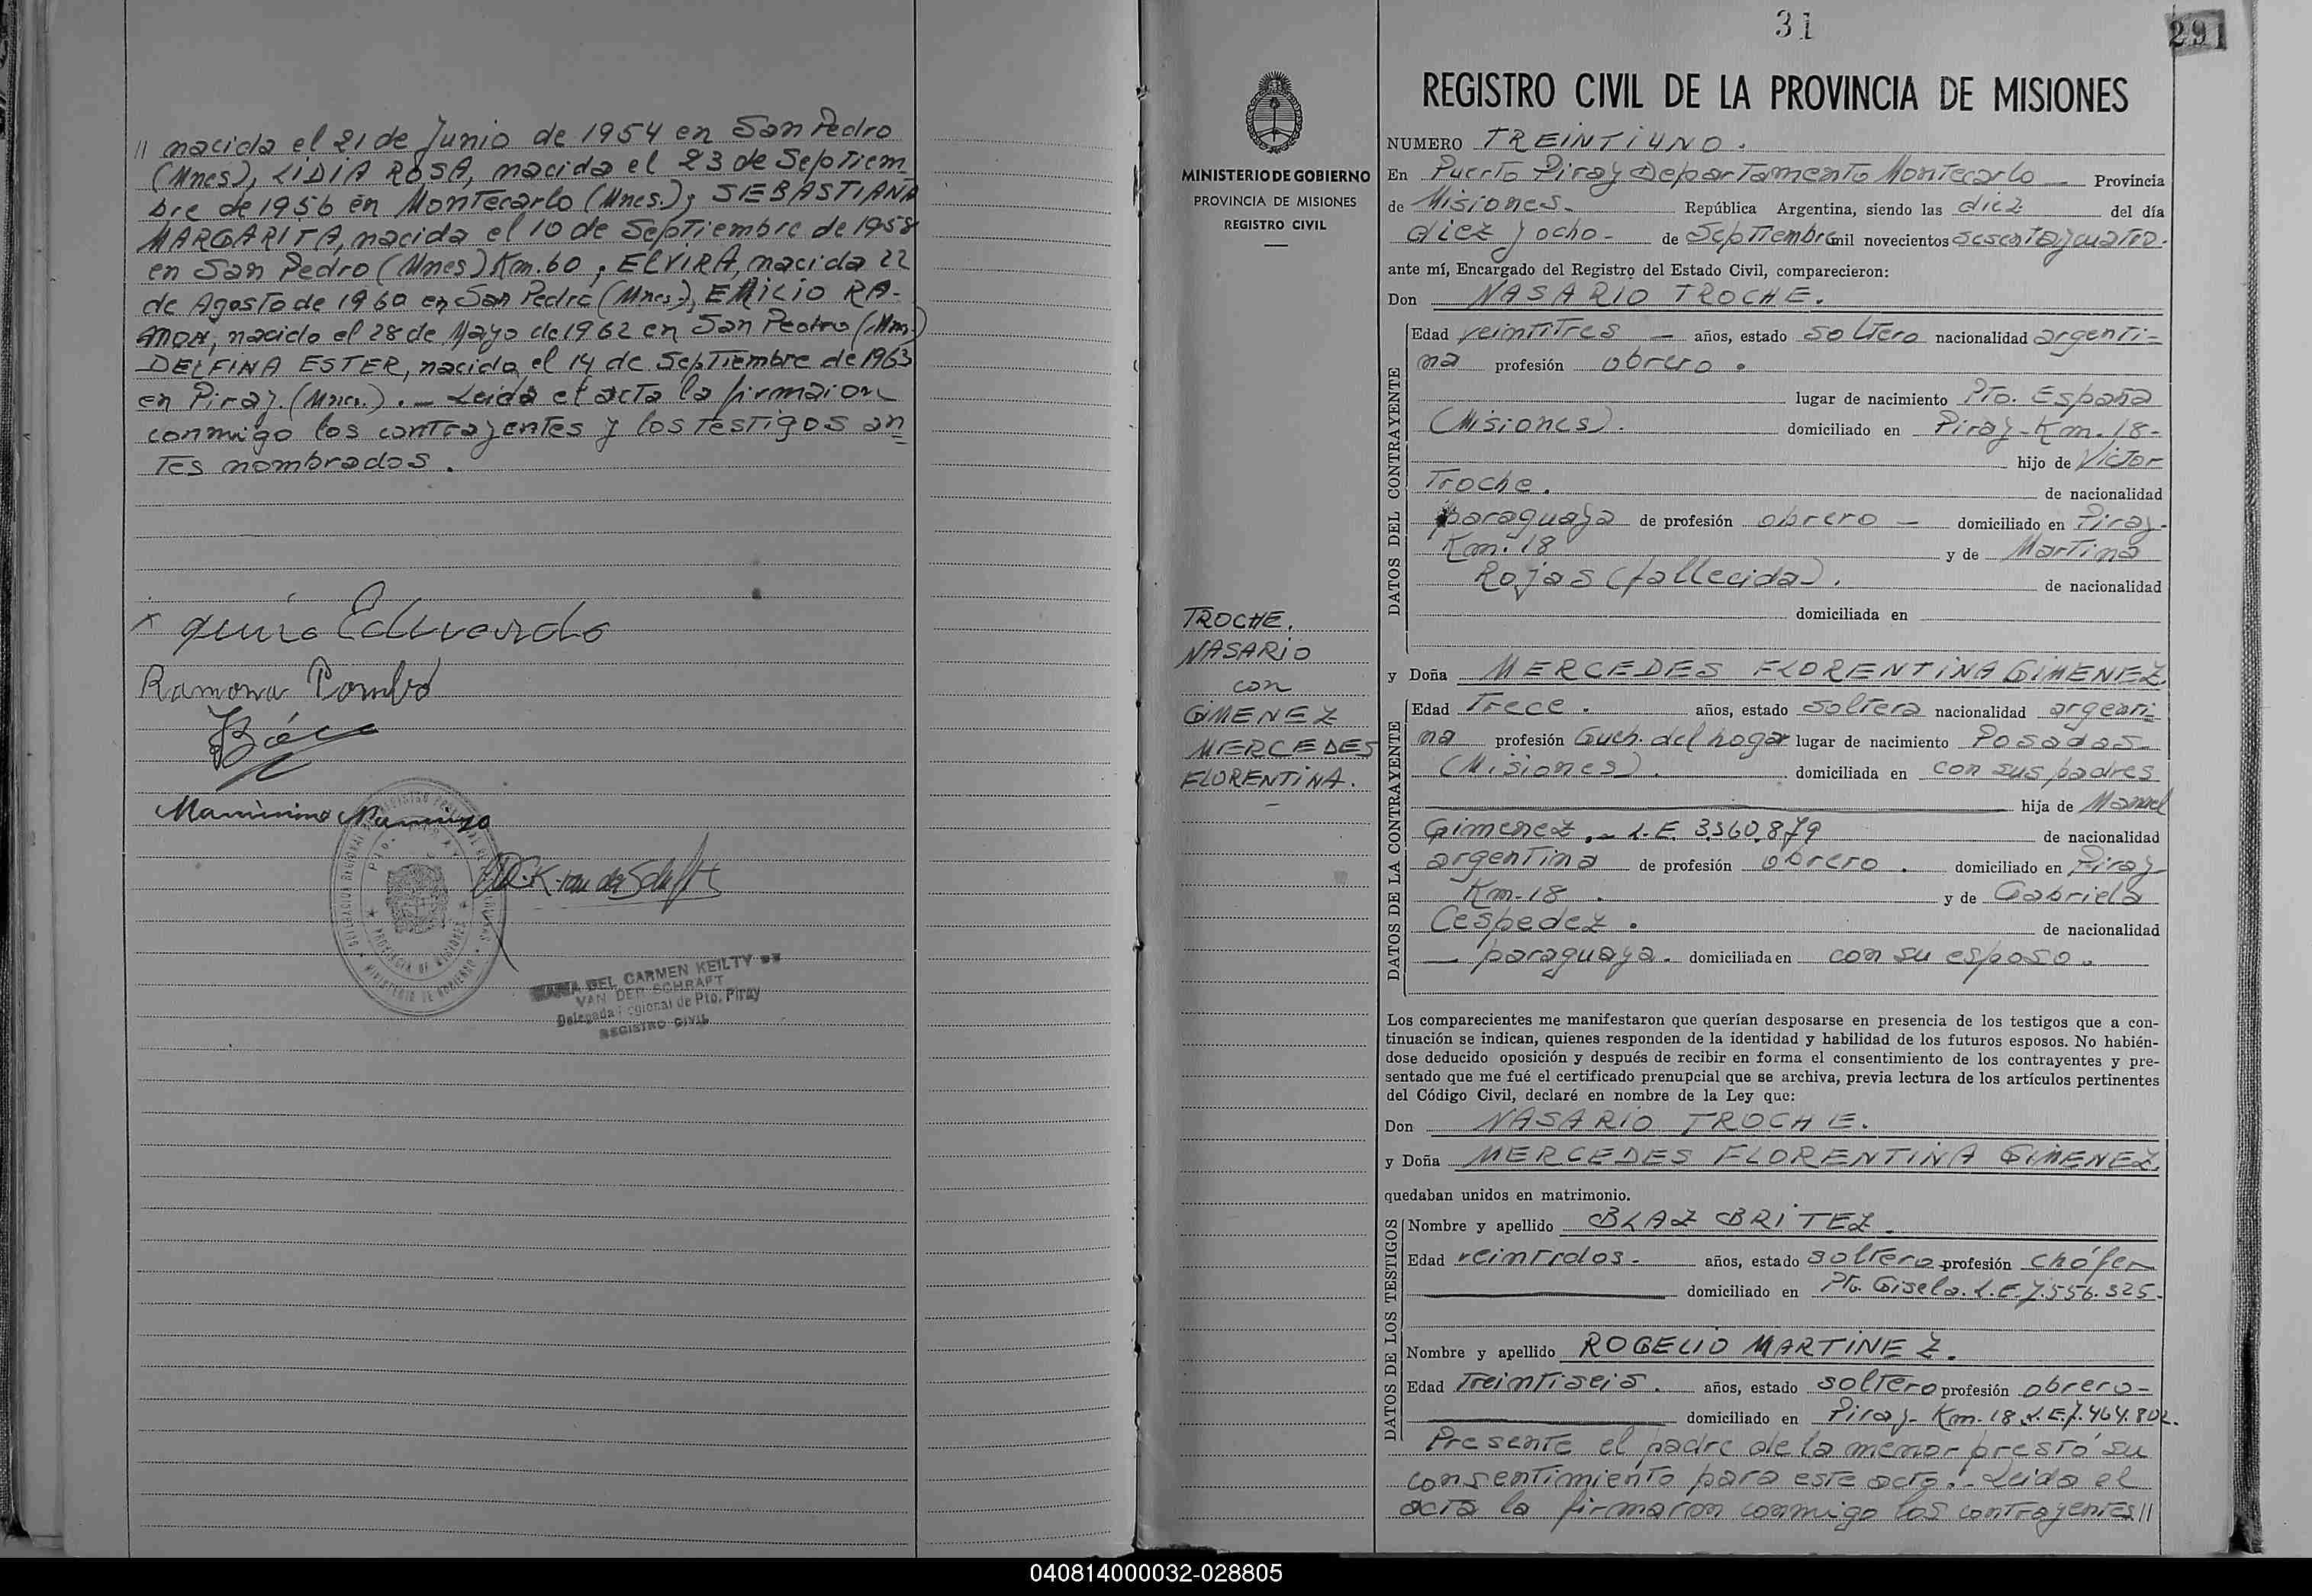 // nacida el 21 de Junio de 1954 en San Pedro
(Mnes), LIDIA ROSA, nacida el 23 de Septiem
bre de 1956 en Montecarlo (Mnes.); SEBASTIANA
MARGARITA, nacida el 10 de Septiembre de 1958
en San Pedro (Mnes) Km. 60, ELVIRA, nacida 22
de Agosto de 1960 en San Pedro (Mnes), EMILIO RA-
MON, nacido el 28 de Mayo de 1962 en San Pedro (Mnes)
DELFINA ESTER, nacida el 14 de Septiembre de 1963
en Piray. (Mnes.). - Leída el acta la firmaron
conmigo los contrayentes y los testigos an
tes nombrados.
Eduardo
Ramona Pombo
Báez
DELEGACION REGIONAL
PROVINCIA DE MISIONES
MINISTERIO DE GOBIERNO
MARIA DEL CARMEN KEILTY DE
VAN DER SCHRAFT
Delegada Regional de Pto. Piray
REGISTRO CIVIL
31
291
MINISTERIO DE GOBIERNO
PROVINCIA DE MISIONES
REGISTRO CIVIL
TROCHE,
NASARIO
con
GIMENEZ
MERCEDES
FLORENTINA.
REGISTRO CIVIL DE LA PROVINCIA DE MISIONES
NUMERO TREINTIUNO.
En Puerto Piray Departamento Montecarlo Provincia
de Misiones- República Argentina, siendo las diez del día
diez y ocho- de Septiembre mil novecientos sesenta y cuatro.
ante mí, Encargado del Registro del Estado Civil, comparecieron:
Don NASARIO TROCHE.
DATOS DEL CONTRAYENTE
Edad veintitres - años, estado soltero nacionalidad argenti-
na profesión obrero.
lugar de nacimiento Pto. España
(Misiones). domiciliado en Piray-Km. 18-
hijo de Victor
Troche. de nacionalidad
paraguaya de profesión obrero - domiciliado en Piray-
Km. 18 y de Martina
Rojas (fallecida). de nacionalidad
domiciliada en
y Doña MERCEDES FLORENTINA GIMENEZ.
DATOS DE LA CONTRAYENTE
Edad Trece. años, estado soltera nacionalidad argenti-
na profesión Queh. del hogar lugar de nacimiento Posadas-
(Misiones). domiciliada en con sus padres
hija de Manuel
Gimenez.- L.E. 3.360.879 de nacionalidad
argentina de profesión obrero. domiciliado en Piray-
Km-18. y de Gabriela
Cespedez. de nacionalidad
- paraguaya. domiciliada en con su esposo.
Los comparecientes me manifestaron que querían desposarse en presencia de los testigos que a con-
tinuación se indican, quienes responden de la identidad y habilidad de los futuros esposos. No habién-
dose deducido oposición y después de recibir en forma el consentimiento de los contrayentes y pre-
sentado que me fué el certificado prenupcial que se archiva, previa lectura de los artículos pertinentes
del Código Civil, declaré en nombre de la Ley que:
Don NASARIO TROCHE.
y Doña MERCEDES FLORENTINA GIMENEZ.
quedaban unidos en matrimonio.
DATOS DE LOS TESTIGOS
Nombre y apellido BLAZ BRITEZ.
Edad veintidos- años, estado soltero profesión chófer
domiciliado en Pto. Gisela. L.E. 7.556.325-
Nombre y apellido ROGELIO MARTINEZ.
Edad Treintiseis. años, estado soltero profesión obrero-
domiciliado en Piray- Km. 18 L.E. 7.464.802.
Presente el padre de la menor prestó su
consentimiento para este acto.- Leida el
acta la firmaron conmigo los contrayentes//
040814000032-028805